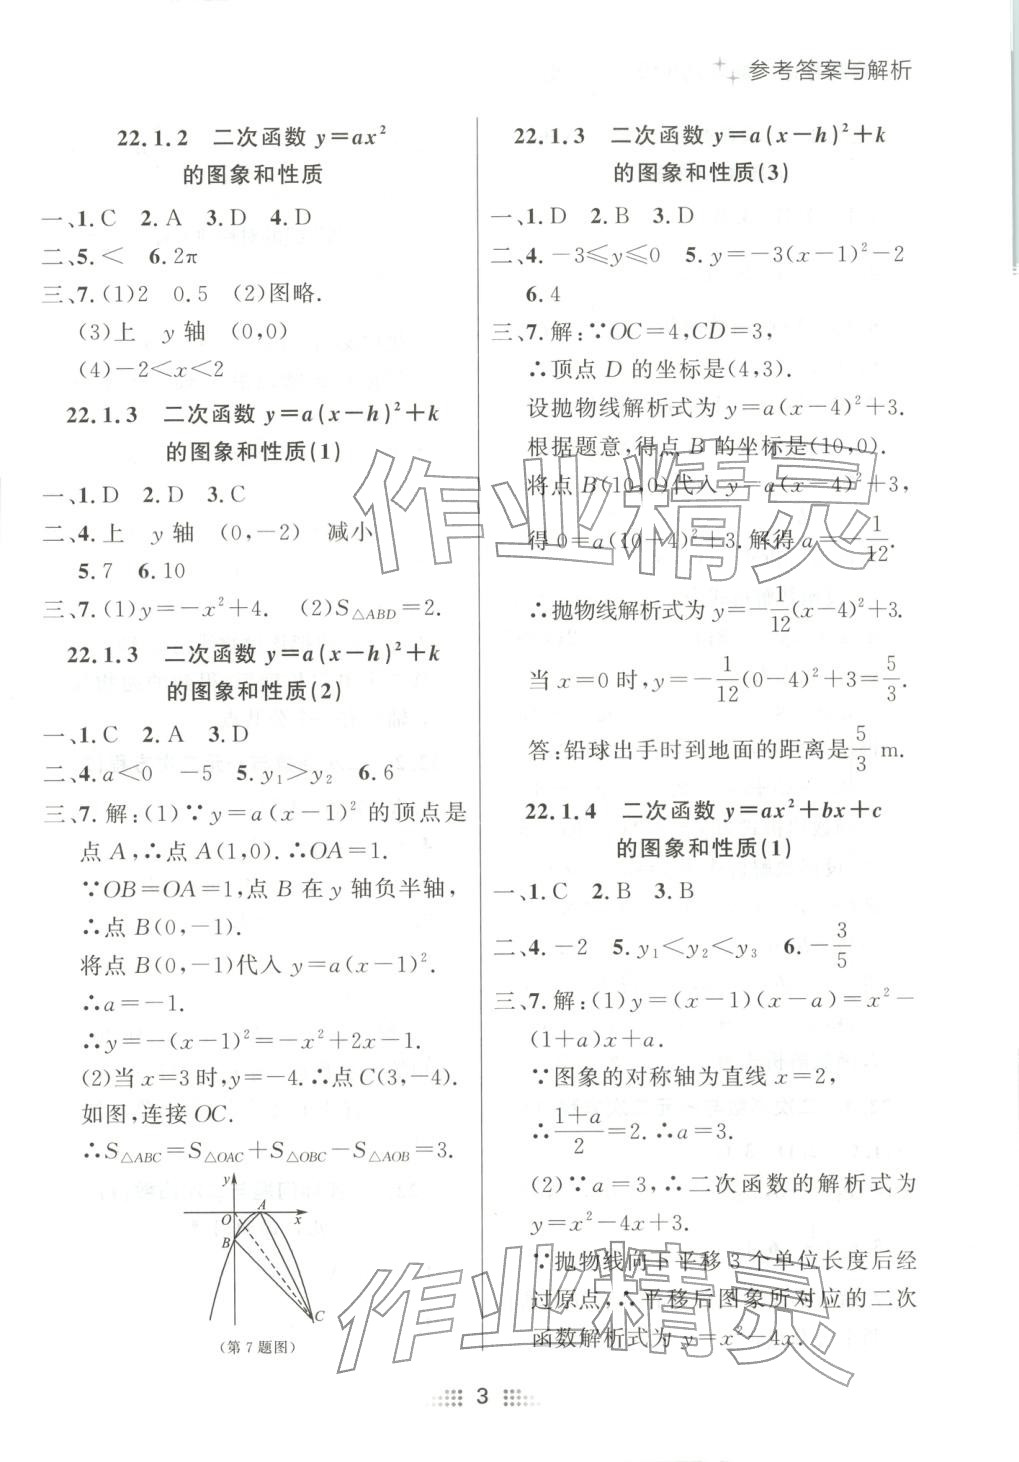 参考答案与解析
22.1.2 二次函数 y=ax²
的图象和性质
一、1.C 2.A 3.D 4.D
二、5.< 6.2π
三、7.(1)2 0.5 (2)图略.
(3)上 y轴 (0,0)
(4)-2<x<2
22.1.3 二次函数 y=a(x-h)²+k
的图象和性质(1)
一、1.D 2.D 3.C
二、4.上 y轴 (0,-2) 减小
5.7 6.10
三、7.(1)y=-x²+4. (2)S△ABD=2.
22.1.3 二次函数 y=a(x-h)²+k
的图象和性质(2)
一、1.C 2.A 3.D
二、4.a<0 -5 5.y₁>y₂ 6.6
三、7.解:(1)∵y=a(x-1)²的顶点是
点A,∴点A(1,0).∴OA=1.
∵OB=OA=1,点B在y轴负半轴,
∴点B(0,-1).
将点B(0,-1)代入 y=a(x-1)².
∴a=-1.
∴y=-(x-1)²=-x²+2x-1.
(2)当x=3时,y=-4.∴点C(3,-4).
如图,连接OC.
∴S△ABC=S△OAC+S△OBC-S△AOB=3.
y
O A x
B
C
(第7题图)
22.1.3 二次函数 y=a(x-h)²+k
的图象和性质(3)
一、1.D 2.B 3.D
二、4.-3≤y≤0 5.y=-3(x-1)²-2
6.4
三、7.解:∵OC=4,CD=3,
∴顶点D的坐标是(4,3).
设抛物线解析式为 y=a(x-4)²+3.
根据题意,得点B的坐标是(10,0).
将点B(10,0)代入 y=a(x-4)²+3,
得0=a(10-4)²+3.解得a=-1/12.
∴抛物线解析式为 y=-1/12(x-4)²+3.
当x=0时,y=-1/12(0-4)²+3=5/3.
答:铅球出手时到地面的距离是5/3 m.
22.1.4 二次函数 y=ax²+bx+c
的图象和性质(1)
一、1.C 2.B 3.B
二、4.-2 5.y₁<y₂<y₃ 6.-3/5
三、7.解:(1)y=(x-1)(x-a)=x²-
(1+a)x+a.
∵图象的对称轴为直线x=2,
∴(1+a)/2=2.∴a=3.
(2)∵a=3,∴二次函数的解析式为
y=x²-4x+3.
∵抛物线向下平移3个单位长度后经
过原点,∴平移后图象所对应的二次
函数解析式为 y=x²-4x.
作业精灵
作业精灵
3